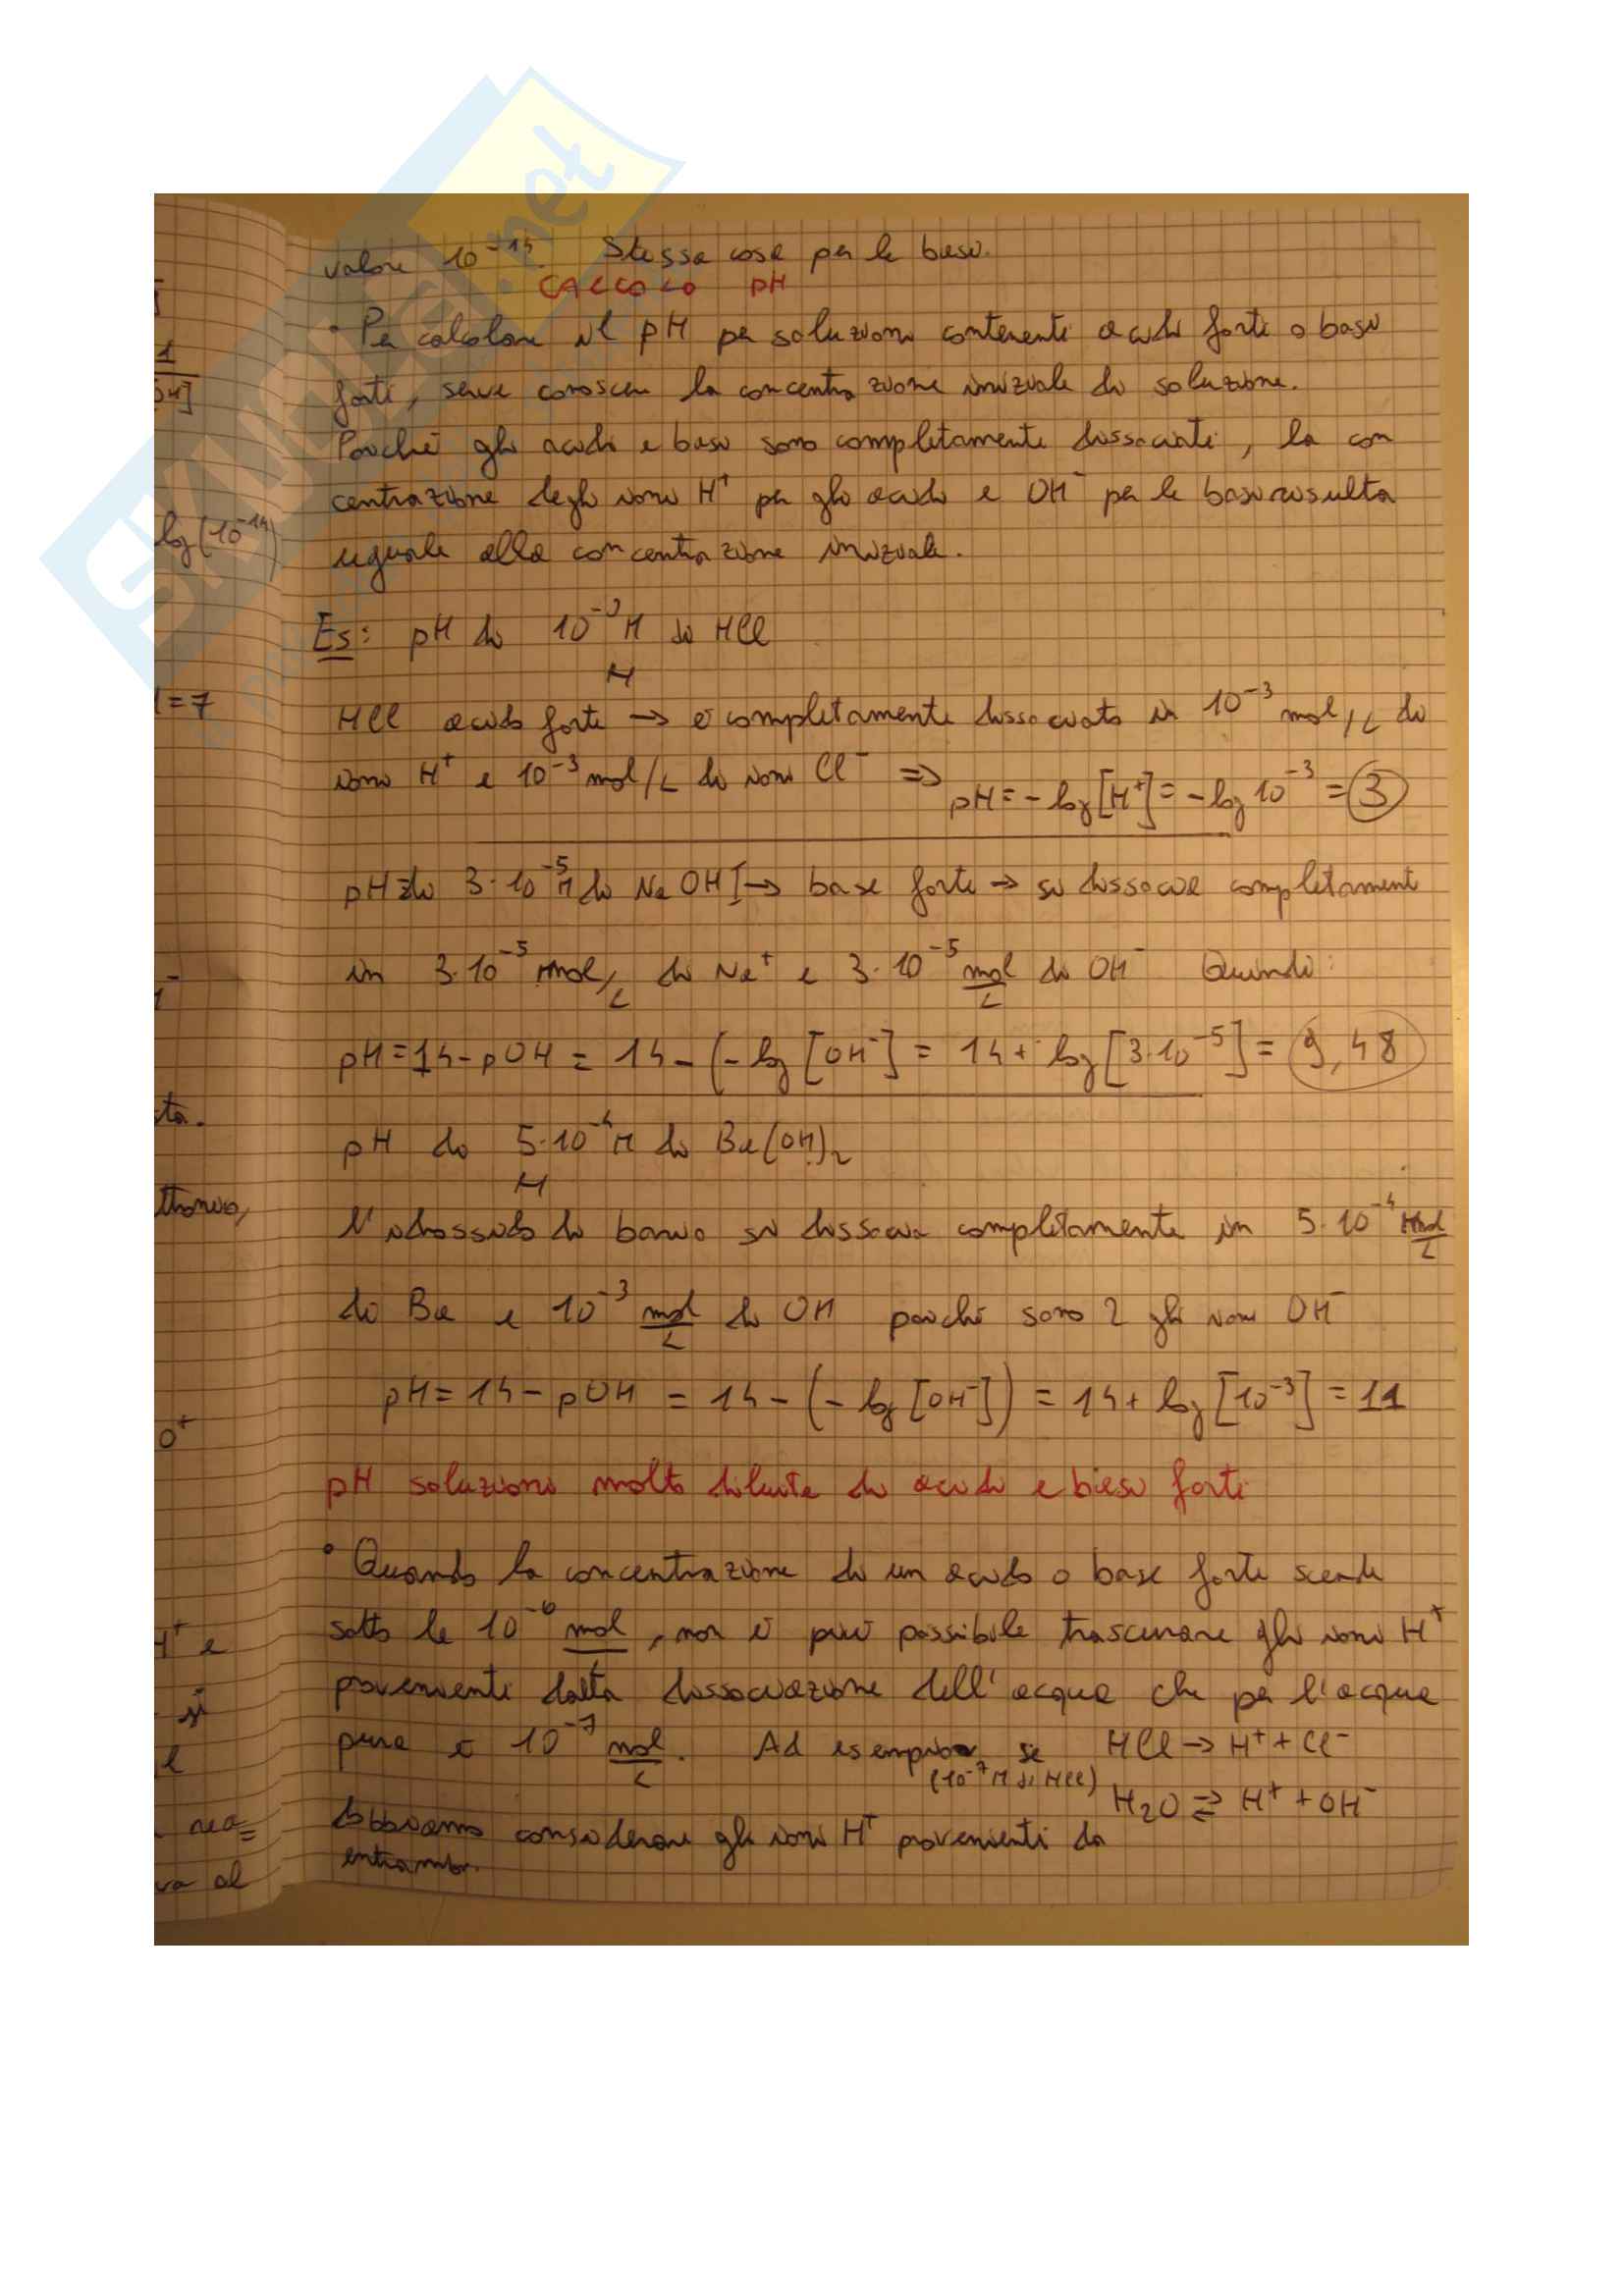 valore 10⁻¹⁴. Stessa cosa per le basi.
CALCOLO pH
• Per calcolare il pH per soluzioni contenenti acidi forti o basi
forti, serve conoscere la concentrazione iniziale di soluzione.
Poiché gli acidi e basi sono completamente dissociati, la con
centrazione degli ioni H⁺ per gli acidi e OH⁻ per le basi risulta
uguale alla concentrazione iniziale.
Es: pH di 10⁻³ M di HCl
M
HCl acido forte → è completamente dissociato in 10⁻³ mol/L di
ioni H⁺ e 10⁻³ mol/L di ioni Cl⁻ ⇒ pH = - log[H⁺] = - log 10⁻³ = 3
pH di 3·10⁻⁵ M di NaOH → base forte → si dissocia completament
in 3·10⁻⁵ mol/L di Na⁺ e 3·10⁻⁵ mol/L di OH⁻ Quindi:
pH = 14 - pOH = 14 - (- log [OH⁻] = 14 + log [3·10⁻⁵] = 9,48
pH di 5·10⁻⁴ M di Ba(OH)₂
M
l'idrossido di bario si dissocia completamente in 5·10⁻⁴ mol/L
di Ba e 10⁻³ mol/L di OH poiché sono 2 gli ioni OH⁻
pH = 14 - pOH = 14 - (- log [OH⁻]) = 14 + log [10⁻³] = 11
pH soluzioni molto diluite di acidi e basi forti
• Quando la concentrazione di un acido o base forte scende
sotto le 10⁻⁶ mol, non è più possibile trascurare gli ioni H⁺
provenienti dalla dissociazione dell'acqua che per l'acqua
pura è 10⁻⁷ mol/L. Ad esempio, se HCl → H⁺ + Cl⁻
(10⁻⁷ M di HCl) H₂O ⇄ H⁺ + OH⁻
dobbiamo considerare gli ioni H⁺ provenienti da
entrambi.
1
OH]
log(10⁻¹⁴)
=7
ta.
o⁺
H⁺ e
va al
SKUOLA.net